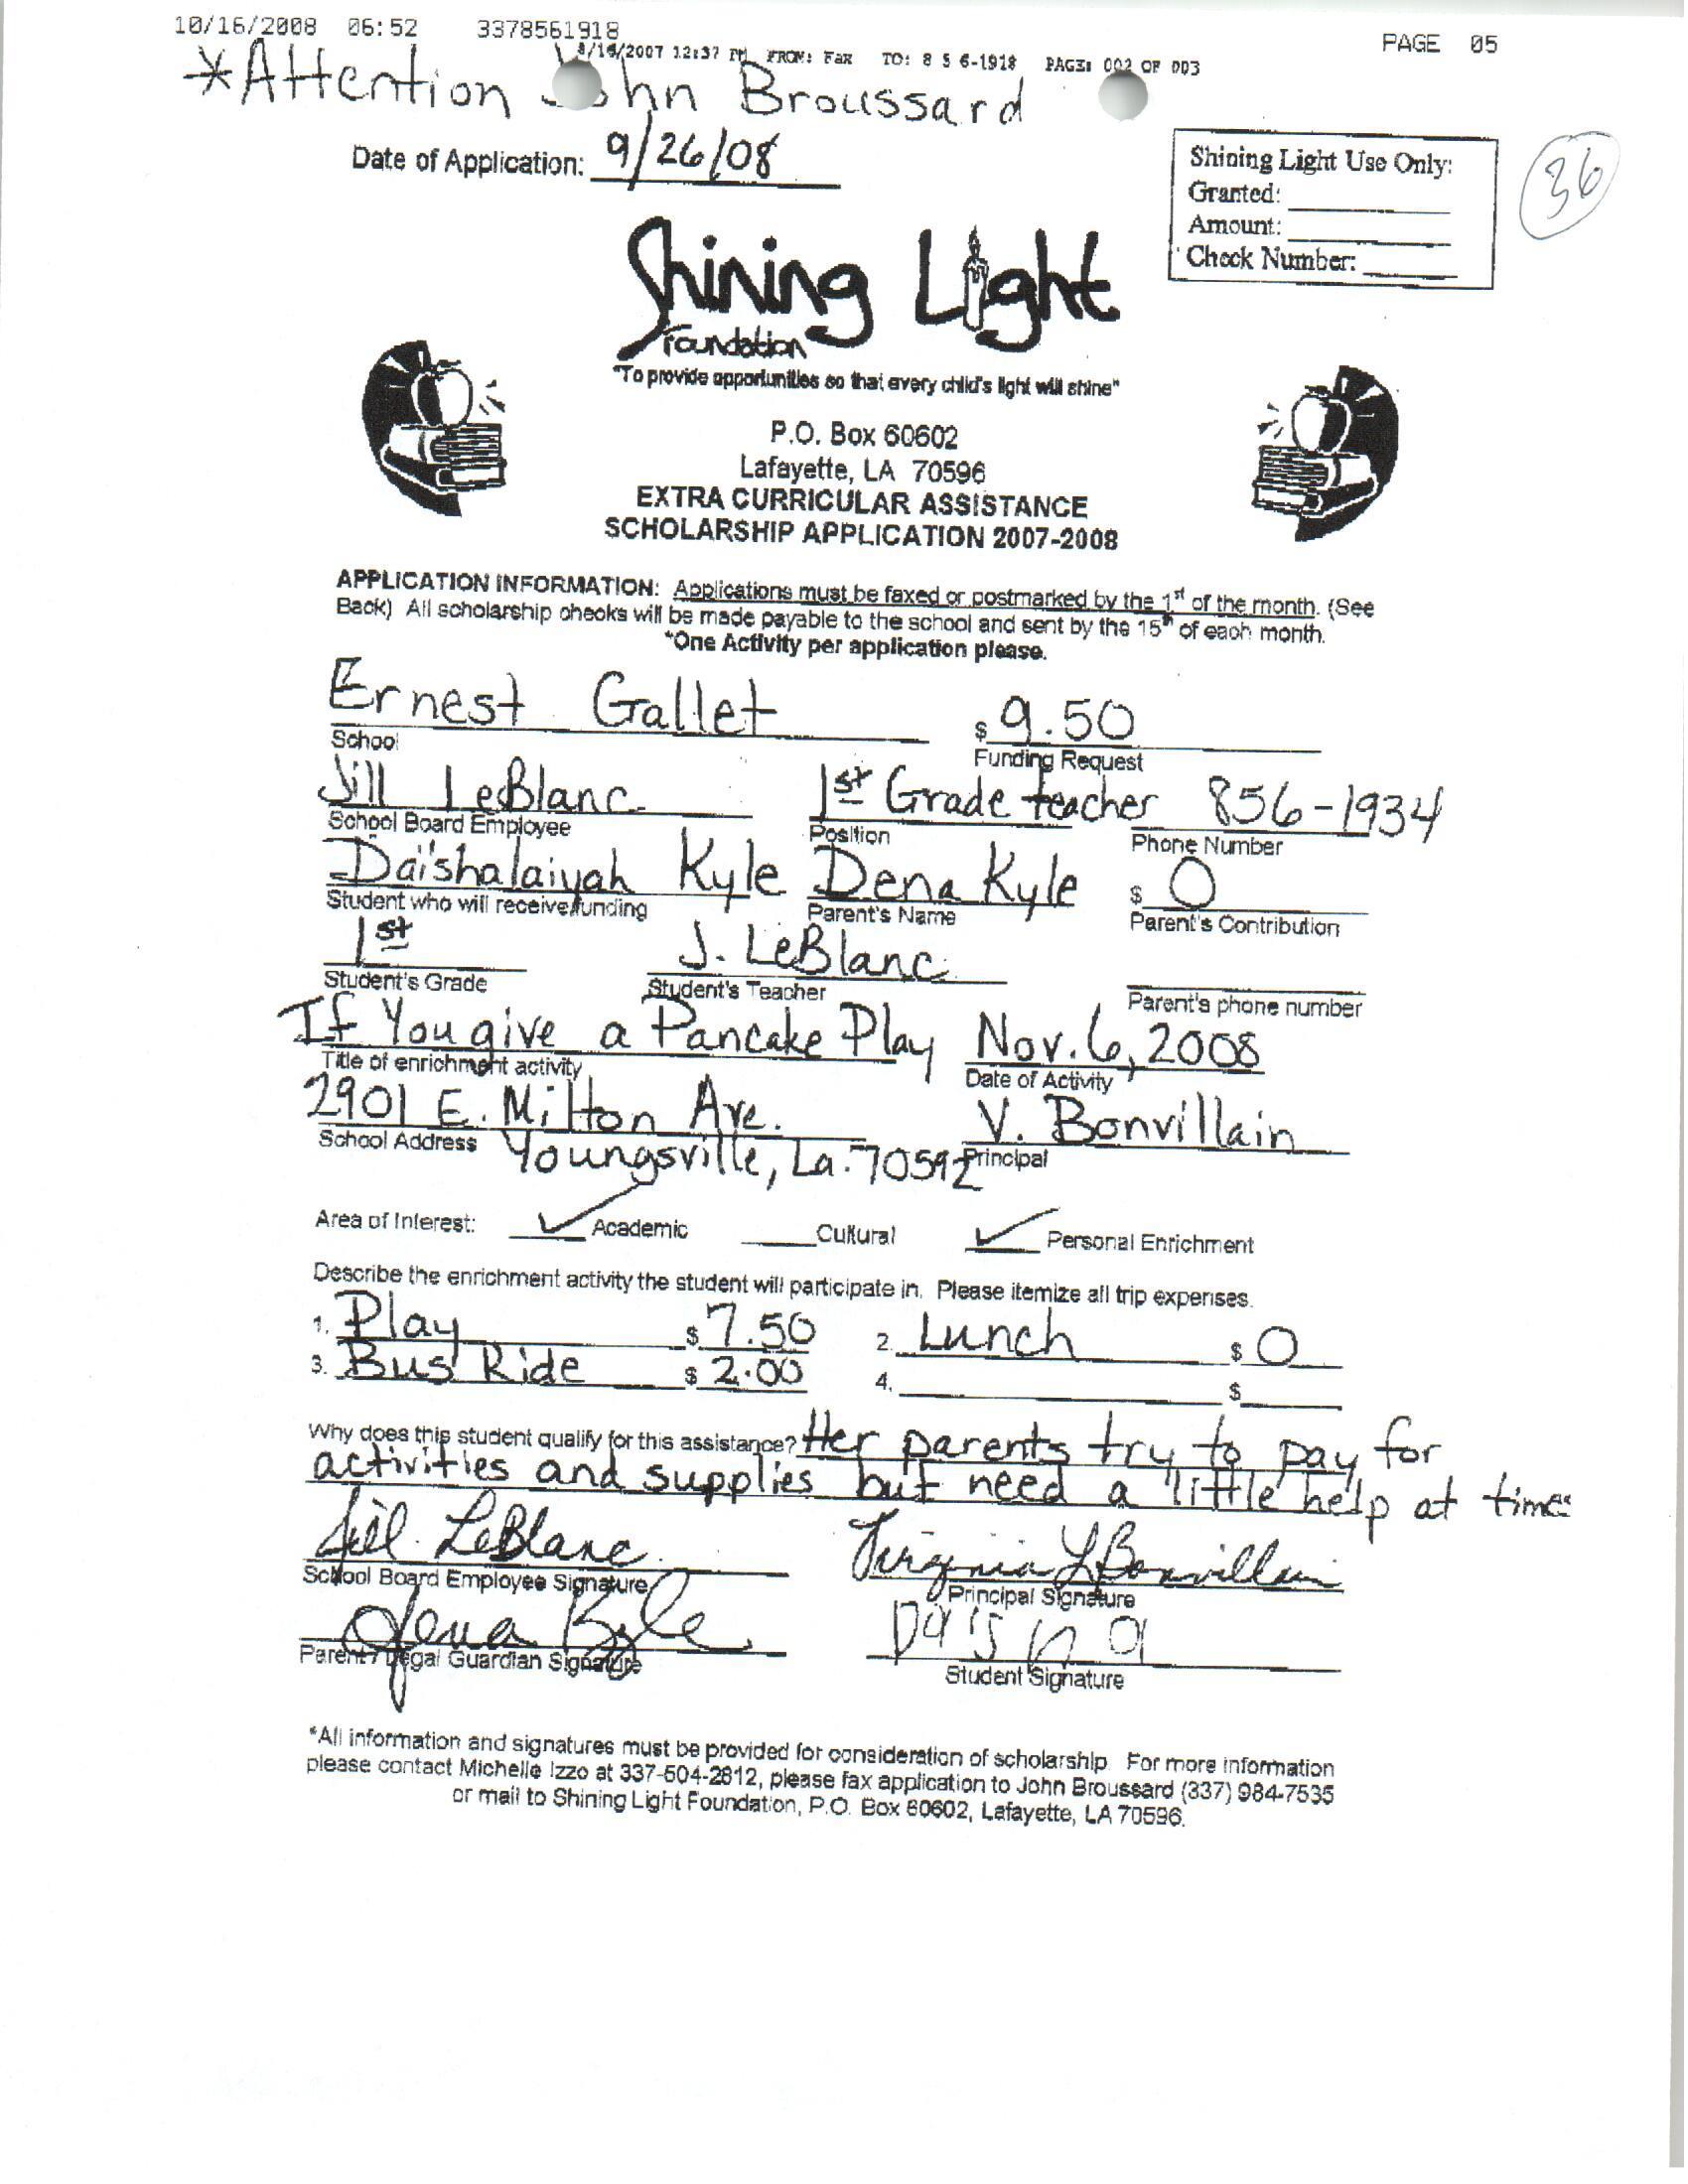 10/16/2008 06:52 3378561918 PAGE 05
8/16/2007 12:37 PM FROM: Fax TO: 8 5 6-1918 PAGE: 002 OF 003
*Attention John Broussard
Date of Application: 9/26/08
Shining Light Use Only:
Granted:
Amount:
Check Number:
36
Shining Light
Foundation
"To provide opportunities so that every child's light will shine"
P.O. Box 60602
Lafayette, LA 70596
EXTRA CURRICULAR ASSISTANCE
SCHOLARSHIP APPLICATION 2007-2008
APPLICATION INFORMATION: Applications must be faxed or postmarked by the 1st of the month. (See
Back) All scholarship checks will be made payable to the school and sent by the 15th of each month.
*One Activity per application please.
Ernest Gallet $ 9.50
School Funding Request
Jill LeBlanc 1st Grade teacher 856-1934
School Board Employee Position Phone Number
Da'shalaiyah Kyle Dena Kyle $ 0
Student who will receive funding Parent's Name Parent's Contribution
1st J. LeBlanc
Student's Grade Student's Teacher Parent's phone number
If You give a Pancake Play Nov. 6, 2008
Title of enrichment activity Date of Activity
2901 E. Milton Ave. V. Bonvillain
School Address Youngsville, La. 70592 Principal
Area of Interest: Academic Cultural Personal Enrichment
Describe the enrichment activity the student will participate in. Please itemize all trip expenses.
1. Play $ 7.50 2. Lunch $ 0
3. Bus Ride $ 2.00 4. $
Why does this student qualify for this assistance? Her parents try to pay for
activities and supplies but need a little help at times
Jill LeBlanc Virginia L Bonvillain
School Board Employee Signature Principal Signature
Dena Kyle Da'sha
Parent / Legal Guardian Signature Student Signature
*All information and signatures must be provided for consideration of scholarship For more information
please contact Michelle Izzo at 337-504-2812, please fax application to John Broussard (337) 984-7535
or mail to Shining Light Foundation, P.O. Box 60602, Lafayette, LA 70596.